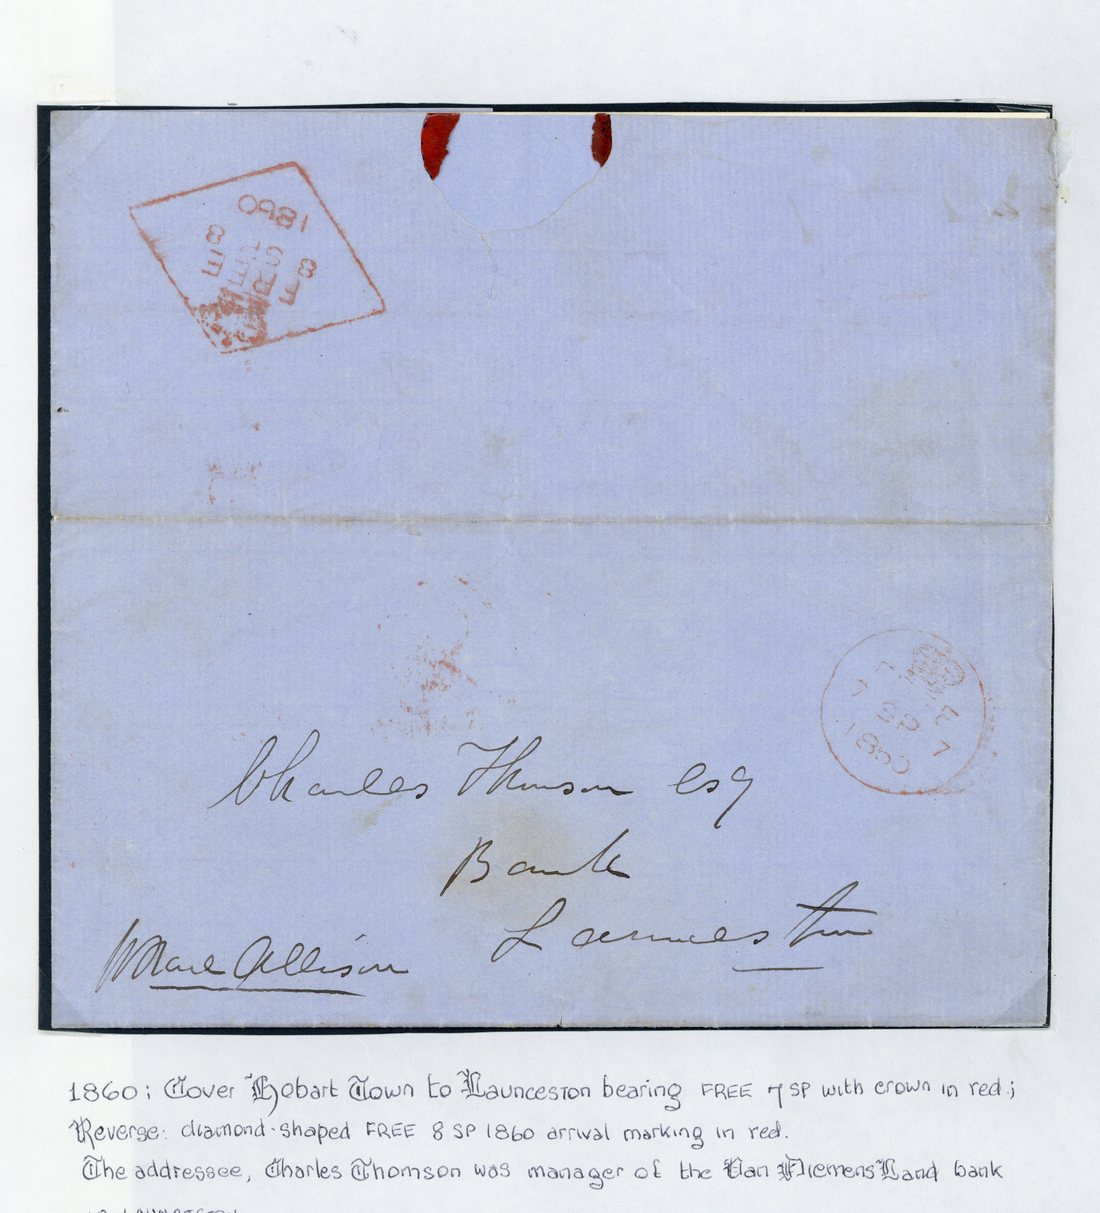 FREE
8 SP 8
1860
FREE
7 SP 7
1860
Charles Thomson esq
Bank
Launceston
Allison
1860: Cover Hobart Town to Launceston bearing FREE 7 SP with crown in red;
Reverse: diamond-shaped FREE 8 SP 1860 arrival marking in red.
The addressee, Charles Thomson was manager of the Van Diemens Land bank
in Launceston